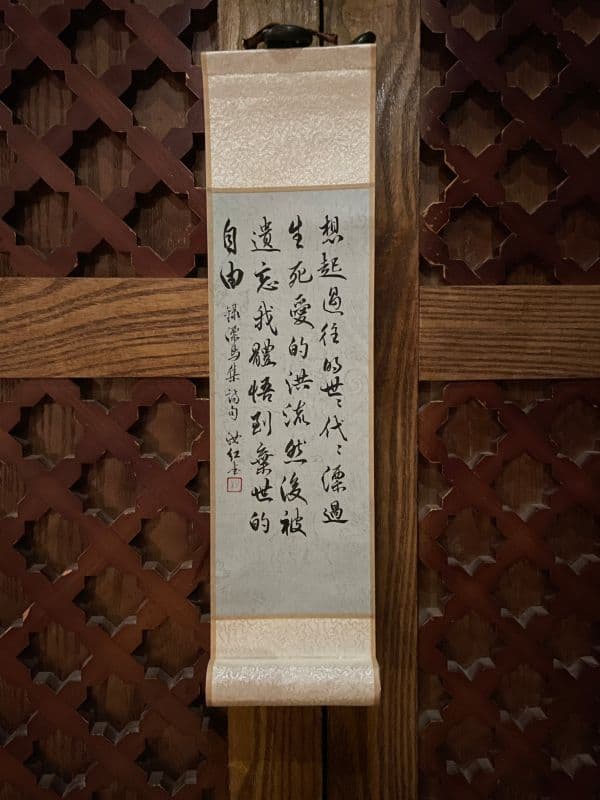 想起過往的世〻代〻漂過
生死愛的洪流然後被
遺忘我體悟到棄世的
自由 錄漂鳥集詩句